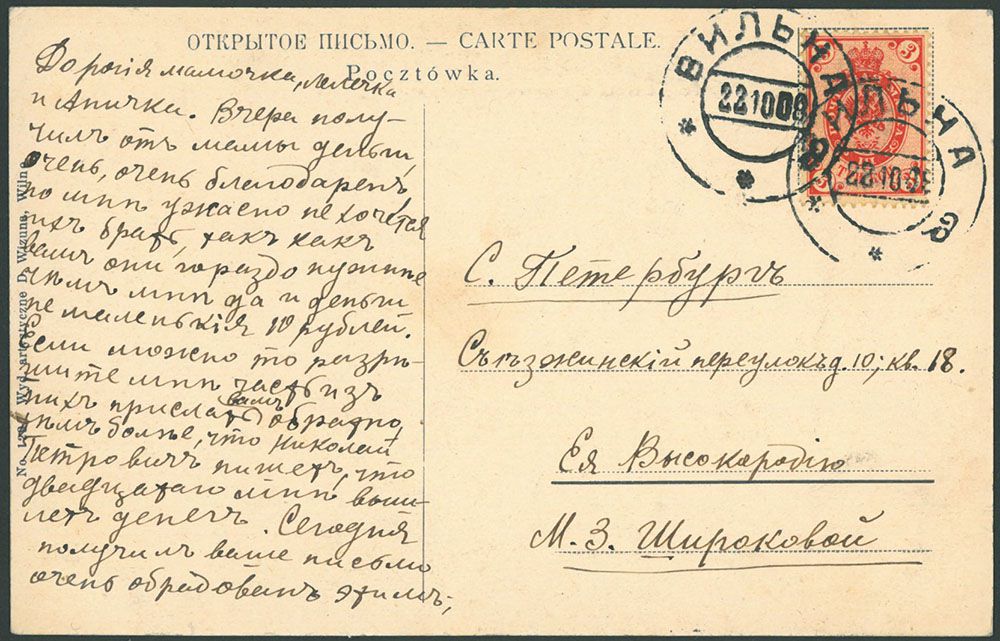 ОТКРЫТОЕ ПИСЬМО. — CARTE POSTALE.
Pocztówka.
Дорогія мамочка, Лелечка
и Аничка. Вчера полу-
чилъ отъ мамы деньги,
очень, очень благодаренъ,
но мнѣ ужасно не хочется
ихъ брать, такъ какъ
вамъ они гораздо нужнѣе
чѣмъ мнѣ да и деньги
не маленькія 10 рублей.
Если можно то разрѣ-
шите мнѣ часть изъ
нихъ прислать вамъ обратно,
тѣмъ болѣе, что Николай
Петровичъ пишетъ, что
двадцатаго мнѣ выш-
летъ денегъ. Сегодня
получилъ ваше письмо
очень обрадованъ этимъ,
Wyd. artystyczne D. Wizuna, Wilno
ВИЛЬНА
22 10 09
ВИЛЬНА
22 10 09
3 3
3
С. Петербургъ
Съѣзжинскій переулокъ д. 10; кв. 18.
Ея Высокародію
М. З. Широковой